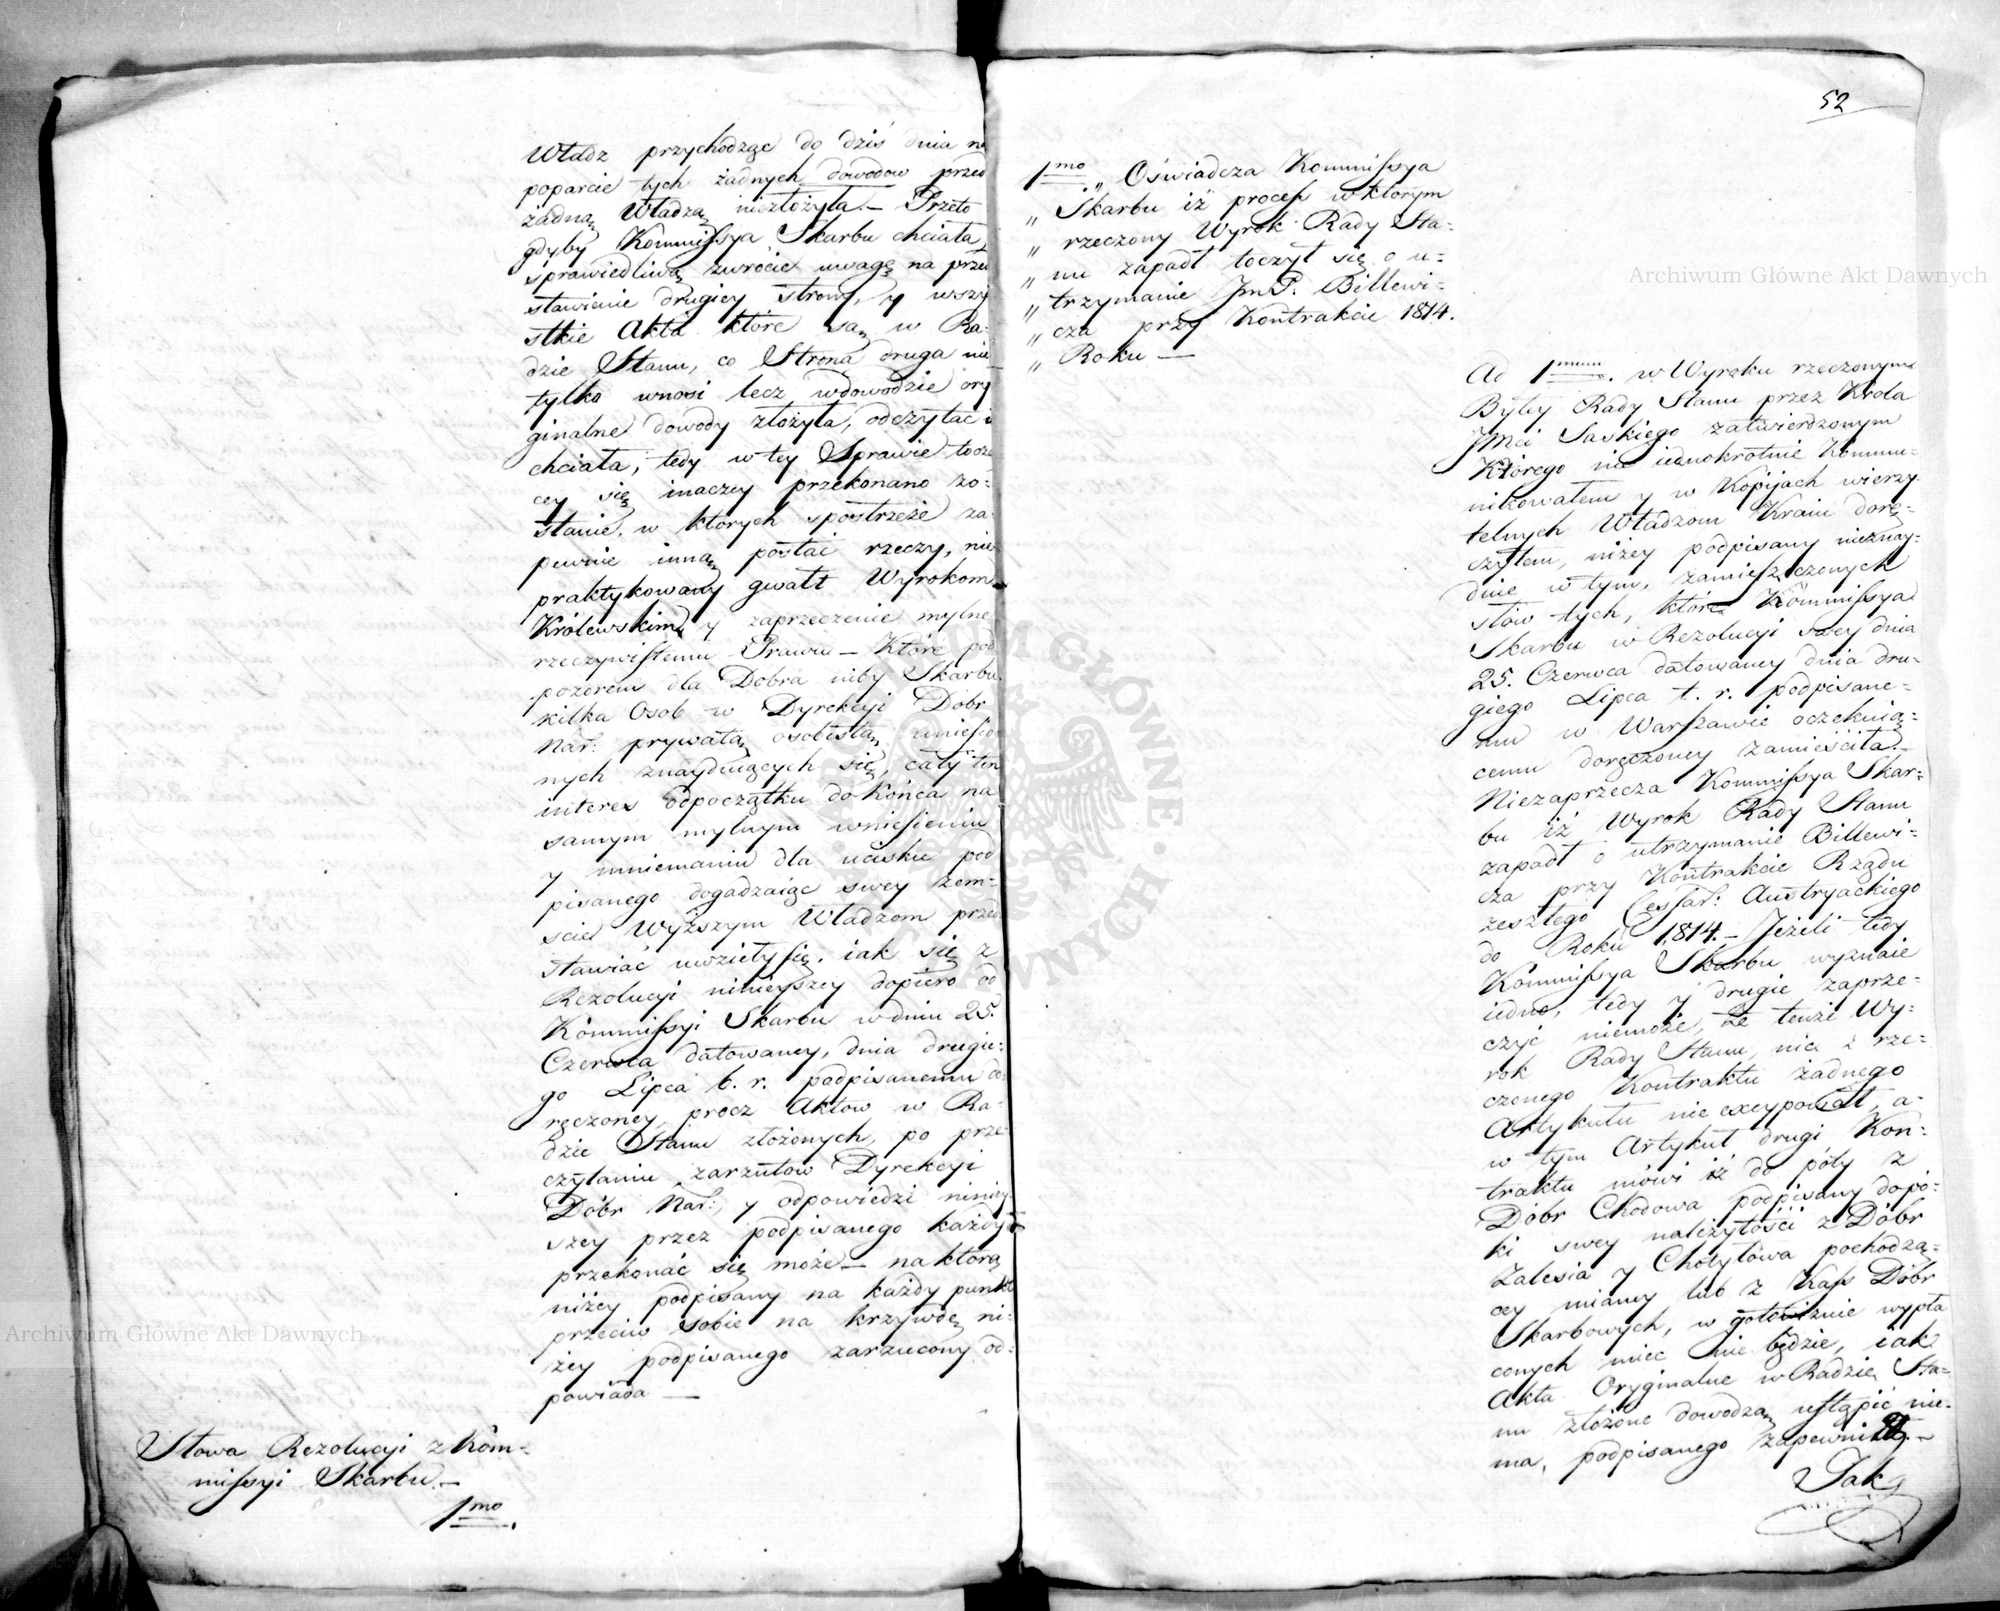 Władz przychodząc do dziś dnia na
poparcie tych żadnych dowodow przed
żadną Władzą niezłożyła. — Przeto
gdyby Kommissya Skarbu chciała
sprawiedliwą zwrócic uwagę na przed
stawienie drugiey strony, y wszy
stkie Akta które są w Ra-
dzie Stanu, co Strona druga nie
tylko wnosi lecz wdowodzie ory
ginalne dowody złożyła, odczytac
chciała, tedy w tey Sprawie toczą
cey się inaczey przekonano zo=
stanie, w ktorych spostrzeże za-
pewnie inną postać rzeczy, nie
praktykowany gwałt Wyrokom
Królewskim y zaprzeczenie mylne
rzeczywistemu Prawu — Które pod
pozorem dla Dobra niby Skarbu
kilka Osob w Dyrekcyi Dóbr
Nar: prywatą osobistą uniesio
nych znayduiących się, cały ten
interes odpoczątku do końca na
samym mylnym wniesieniu
y mniemaniu dla ucisku pod
pisanego dogadzaiąc swey zem=
scie Wyższym Władzom przed
stawiać uwzięły się, iak się z
Rezolucyi ninieyszey dopiero od
Kommissyi Skarbu w dniu 25.
Czerwca datowaney, dnia drugie=
go Lipca b. r. podpisanemu do
ręczoney, procz Aktow w Ra-
dzie Stanu złożonych, po prze-
czytaniu zarzutow Dyrekcyi
Dóbr Nar:, y odpowiedzi niniey
szey przez podpisanego każdy
przekonać się może — na którą
niżey podpisany na każdy punkt
przeciw sobie na krzywdę ni-
żey podpisanego zarzucony od=
powiada —
Słowa Rezolucyi z Kom=
missyi Skarbu. —
1mo.
52
1mo „ Oświadcza Kommissya
„ Skarbu iż process wktorym
„ rzeczony Wyrok Rady Sta=
„ nu zapadł toczył się o u=
„ trzymanie JmP. Billewi=
„ cza przy Kontrakcie 1814.
„ Roku —
Ad 1mum. w Wyroku rzeczonym
Byłey Rady Stanu przez Krola
JMci Saskiego zatwierdzonym
Którego nie iednokrotnie Kommu=
nikowałem y w Kopijach wierzy
telnych Władzom Kraiu dorę=
czyłem, niżey podpisany nieznay=
duie w tym, zamieszczonych
słow tych, które Kommissya
Skarbu w Rezolucyi swey dnia
25. Czerwca datowaney dnia dru=
giego Lipca t. r. podpisane=
mu w Warszawie oczekuią=
cemu doręczoney zamieściła. —
Niezaprzecza Kommissya Skar=
bu iż Wyrok Rady Stanu
zapadł o utrzymanie Billewi=
cza przy Kontrakcie Rządu
zeszłego Cessar: Austryackiego
do Roku 1814. — Jeżeli tedy
Kommissya Skarbu wyznaie
iedno, tedy y drugie zaprze=
czyć niemoże, że tenże Wy=
rok Rady Stanu, nic z rze=
czonego Kontraktu żadnego
Artykułu nie excypował, a=
w tym Artykuł drugi Kon=
traktu mówi iż do póty z
Dóbr Chodowa podpisany dopó=
ki swey należytości z Dóbr
Zalesia y Chotyłowa pochodzą=
cey mianey lub z Kass Dóbr
Skarbowych, w gotowiznie wypła
conych miec nie będzie, iak
Akta Oryginalne w Radzie Sta=
nu złożone dowodzą ustąpić nie=
ma, podpisanego zapewnia. —
Jak